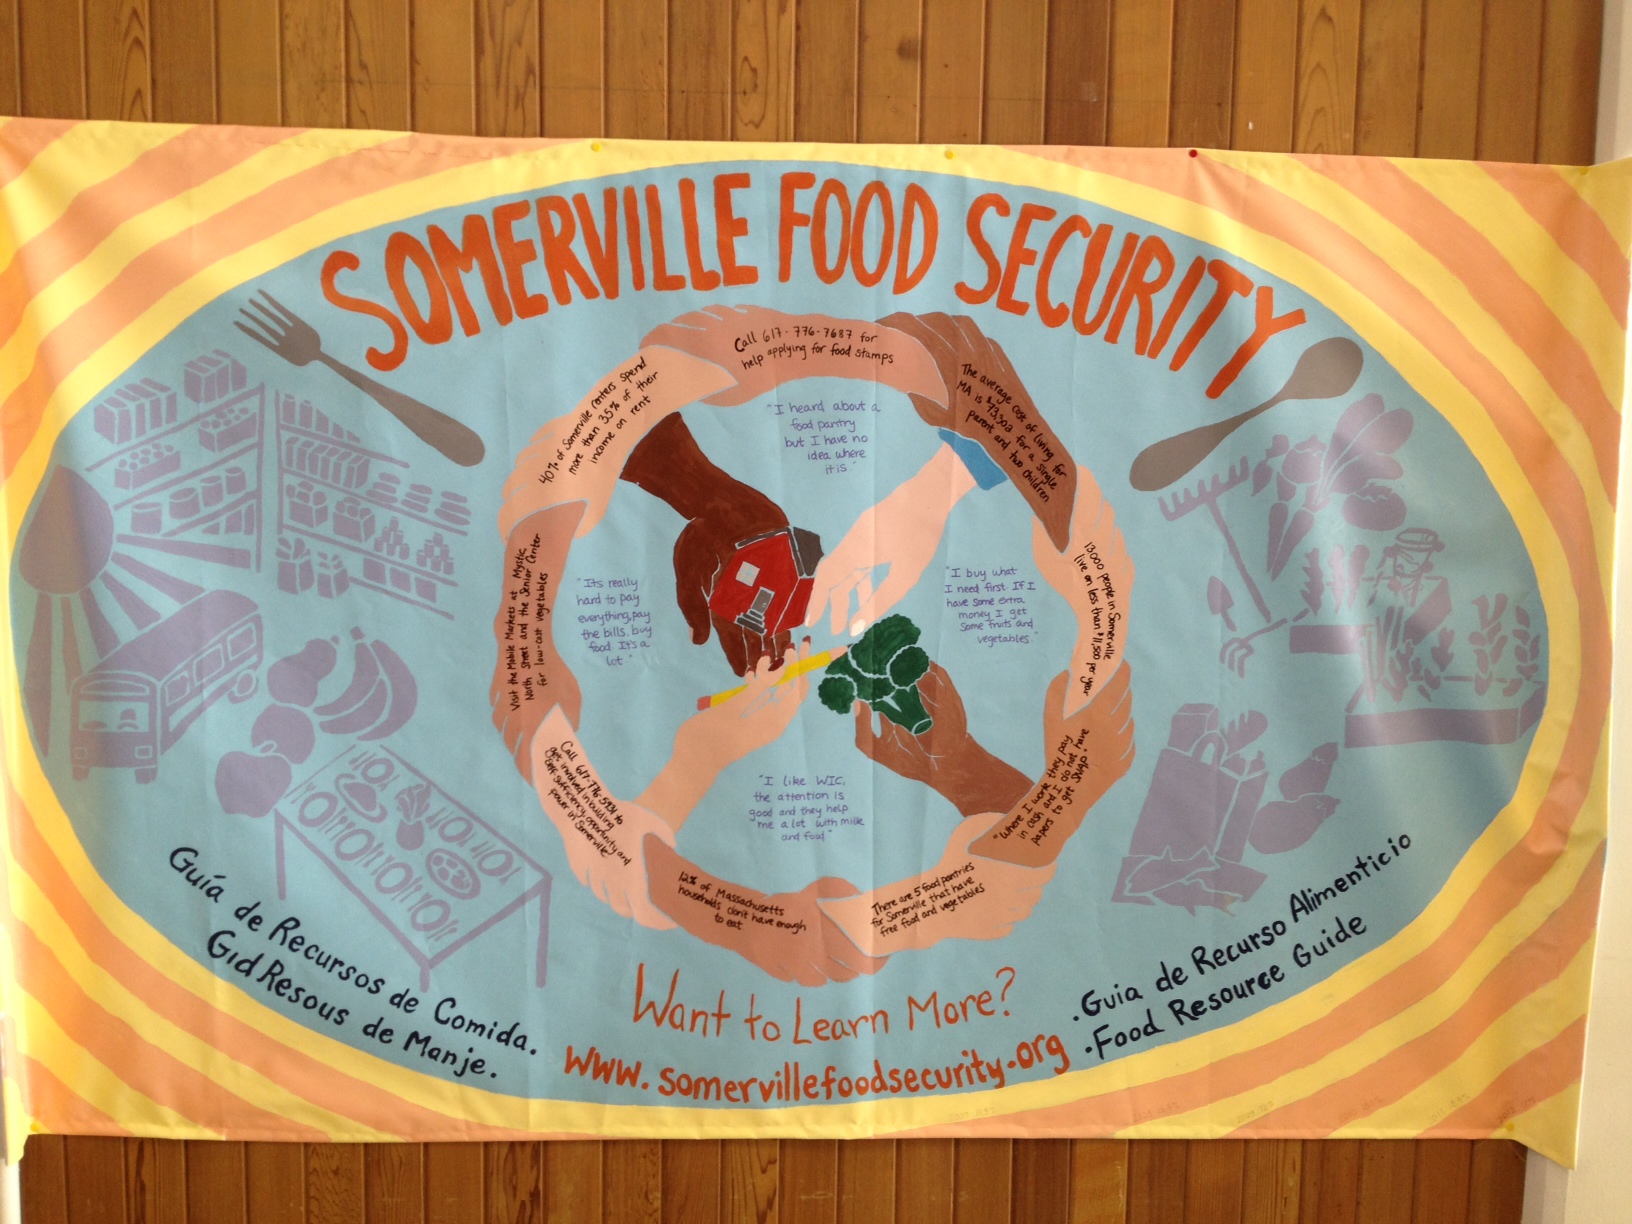 SOMERVILLE FOOD SECURITY
Call 617-776-7687 for
help applying for food stamps
The average cost of living for
MA is $73,302 for a single
parent and two children
13000 people in Somerville
live on less than $11,500 per year
"Where I work they pay
in cash and I do not have
papers to get SNAP."
There are 5 food pantries
for Somerville that have
free food and vegetables
12% of Massachusetts
households don't have enough
to eat
Call 617-776-5931 to
get involved in building
self-sufficiency, opportunity and
power in Somerville
Visit the Mobile Markets at Mystic,
North Street and the Senior Center
for low-cost vegetables
40% of Somerville renters spend
more than 35% of their
income on rent
"I heard about a
food pantry
but I have no
idea where
it is."
"Its really
hard to pay
everything, pay
the bills, buy
food. It's a
lot."
"I buy what
I need first If I
have some extra
money I get
some fruits and
vegetables."
"I like WIC,
the attention is
good and they help
me a lot with milk
and food"
Guía de Recursos de Comida.
Gid Resous de Manje.
Want to Learn More?
www.somervillefoodsecurity.org
.Guia de Recurso Alimenticio
.Food Resource Guide